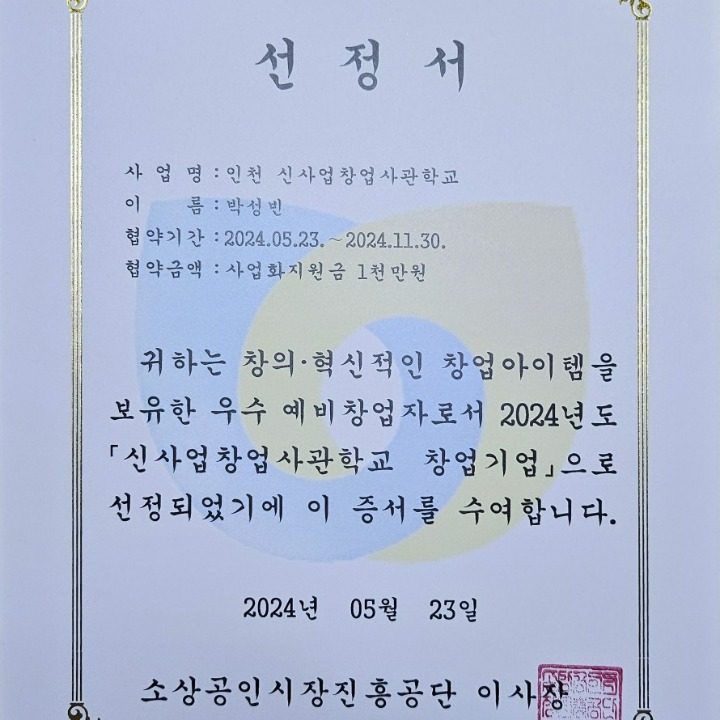 선 정 서
사 업 명 : 인천 신사업창업사관학교
이 름 : 박성빈
협약기간 : 2024.05.23. ~ 2024.11.30.
협약금액 : 사업화지원금 1천만원
귀하는 창의·혁신적인 창업아이템을
보유한 우수 예비창업자로서 2024년도
「신사업창업사관학교 창업기업」으로
선정되었기에 이 증서를 수여합니다.
2024년 05월 23일
소상공인시장진흥공단 이사장